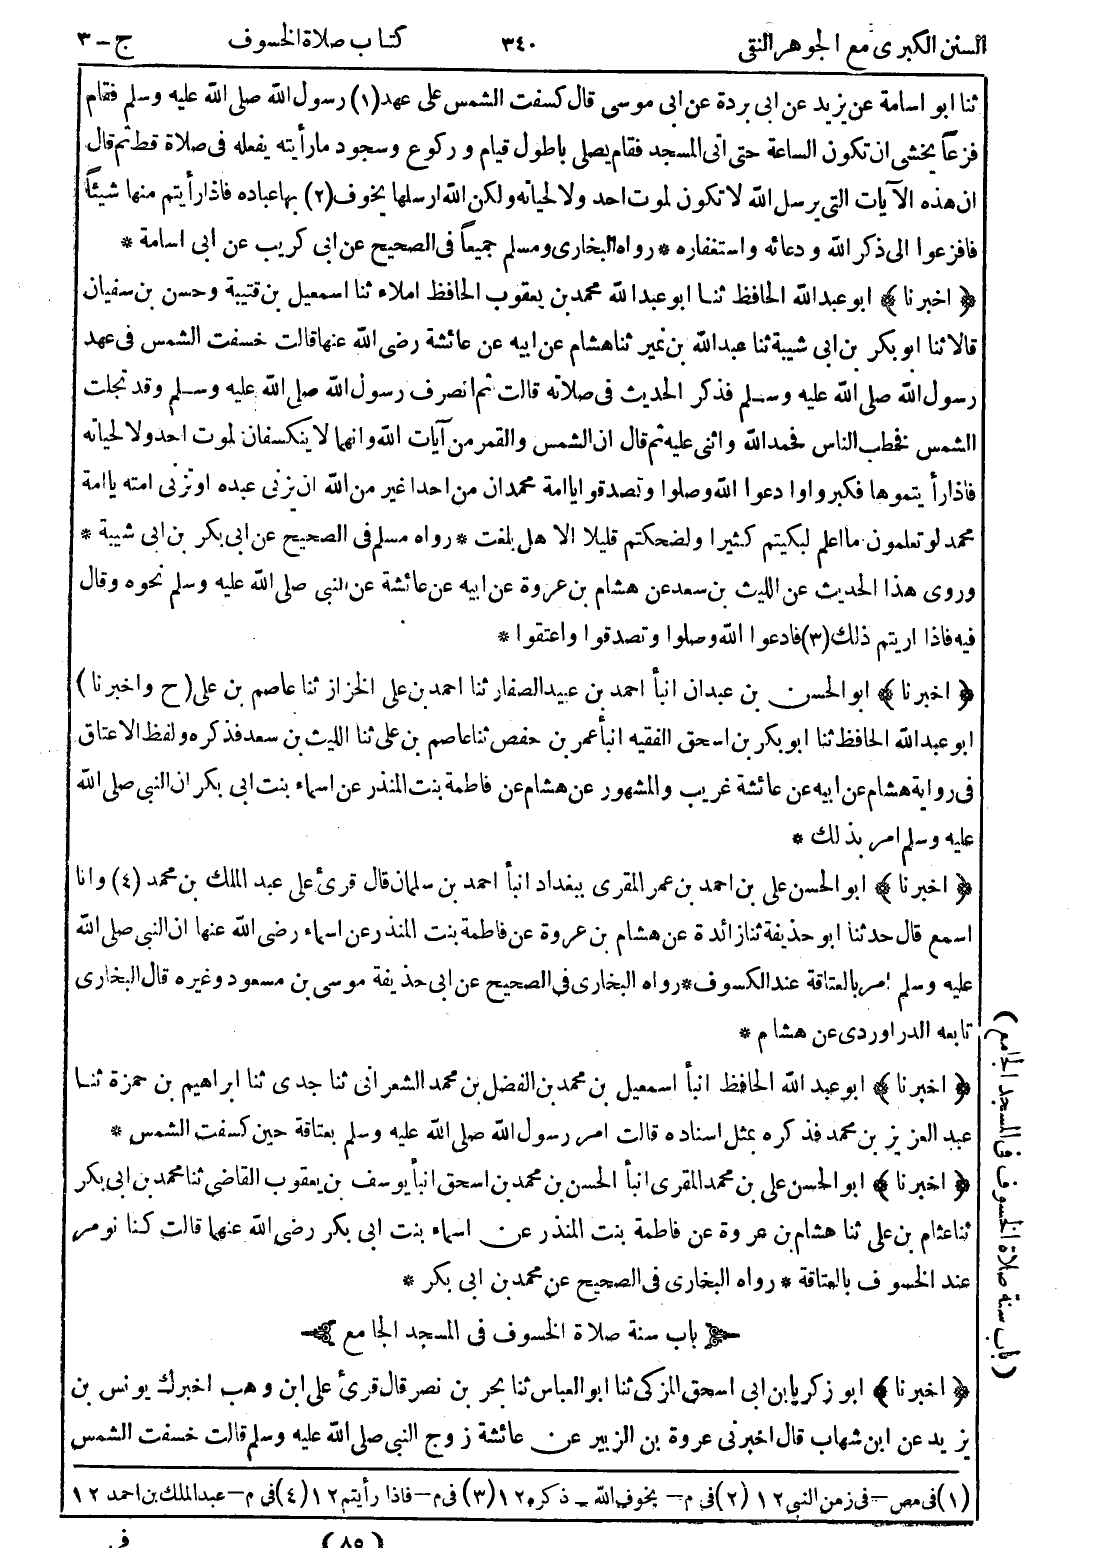 السنن الكبرى مع الجوهر النقى ٣٤٠ كتاب صلاة الخسوف ج-٣
ثنا ابو اسامة عن يزيد عن ابى بردة عن ابى موسى قال كسفت الشمس على عهد(١) رسول الله صلى الله عليه وسلم فقام
فزعاً يخشى ان تكون الساعة حتى اتى المسجد فقام يصلى باطول قيام و ركوع وسجود ما رأيته يفعله فى صلاة قط ثم قال
ان هذه الآيات التى يرسل الله لا تكون لموت احد ولا لحياته ولكن الله ارسلها يخوف (٢) بها عباده فاذا رأيتم منها شيئاً
فافزعوا الى ذكر الله و دعائه واستغفاره * رواه البخارى ومسلم جميعاً فى الصحيح عن ابى كريب عن ابى اسامة *
﴿ اخبرنا ﴾ ابو عبدالله الحافظ ثنا ابو عبدالله محمد بن يعقوب الحافظ املاء ثنا اسمعيل بن قتيبة وحسن بن سفيان
قالا ثنا ابو بكر بن ابى شيبة ثنا عبدالله بن نمير ثنا هشام عن ابيه عن عائشة رضى الله عنها قالت خسفت الشمس فى عهد
رسول الله صلى الله عليه وسلم فذكر الحديث فى صلاته قالت ثم انصرف رسول الله صلى الله عليه وسلم وقد تجلت
الشمس فخطب الناس فحمد الله واثنى عليه ثم قال ان الشمس والقمر من آيات الله وانهما لا ينكسفان لموت احد ولا لحياته
فاذا رأ يتموها فكبروا وا دعوا الله وصلوا وتصدقوا يا امة محمد ان من احد اغير من الله ان يزنى عبده او تزنى امته يا امة
محمد لو تعلمون ما اعلم لبكيتم كثيرا ولضحكتم قليلا الا هل بلغت * رواه مسلم فى الصحيح عن ابى بكر بن ابى شيبة *
وروى هذا الحديث عن الليث بن سعد عن هشام بن عروة عن ابيه عن عائشة عن النبى صلى الله عليه وسلم نحوه وقال
فيه فاذا اريتم ذلك(٣) فادعوا الله وصلوا وتصدقوا واعتقوا *
﴿ اخبرنا ﴾ ابو الحسن بن عبدان انبأ احمد بن عبيد الصفار ثنا احمد بن على الخزاز ثنا عاصم بن على (ح واخبرنا)
ابو عبدالله الحافظ ثنا ابو بكر بن اسحق الفقيه انبأ عمر بن حفص ثنا عاصم بن على ثنا الليث بن سعد فذكره ولفظ الاعتاق
فى رواية هشام عن ابيه عن عائشة غريب والمشهور عن هشام عن فاطمة بنت المنذر عن اسماء بنت ابى بكر ان النبى صلى الله
عليه وسلم امر بذلك *
﴿ اخبرنا ﴾ ابو الحسن على بن احمد بن عمر المقرى ببغداد انبأ احمد بن سلمان قال قرئ على عبد الملك بن محمد (٤) وانا
اسمع قال حدثنا ابو حذيفة ثنا زائدة عن هشام بن عروة عن فاطمة بنت المنذر عن اسماء رضى الله عنها ان النبى صلى الله
عليه وسلم امر بالعتاقة عند الكسوف * رواه البخارى فى الصحيح عن ابى حذيفة موسى بن مسعود وغيره قال البخارى
تابعه الدراوردى عن هشام *
﴿ اخبرنا ﴾ ابو عبد الله الحافظ انبأ اسمعيل بن محمد بن الفضل بن محمد الشعرانى ثنا جدى ثنا ابراهيم بن حمزة ثنا
عبد العزيز بن محمد فذكره بمثل اسناده قالت امر رسول الله صلى الله عليه وسلم بعتاقة حين كسفت الشمس *
﴿ اخبرنا ﴾ ابو الحسن على بن محمد المقرى انبأ الحسن بن محمد بن اسحق انبأ يوسف بن يعقوب القاضى ثنا محمد بن ابى بكر
ثنا عثام بن على ثنا هشام بن عروة عن فاطمة بنت المنذر عن اسماء بنت ابى بكر رضى الله عنهما قالت كنا نومر
عند الخسوف بالعتاقة * رواه البخارى فى الصحيح عن محمد بن ابى بكر *
باب سنة صلاة الخسوف فى المسجد الجامع
﴿ اخبرنا ﴾ ابو زكريا بن ابى اسحق المزكى ثنا ابو العباس ثنا بحر بن نصر قال قرئ على ابن وهب اخبرك يونس بن
يزيد عن ابن شهاب قال اخبرنى عروة بن الزبير عن عائشة زوج النبى صلى الله عليه وسلم قالت خسفت الشمس
(١) فى مص-فى زمن النبى ١٢ (٢) فى م- يخوف الله - ذكره ١٢ (٣) فى م-فاذا رأيتم ١٢ (٤) فى م-عبد الملك بن احمد ١٢
(٨٥) فى
(باب سنة صلاة الخسوف فى المسجد الجامع)